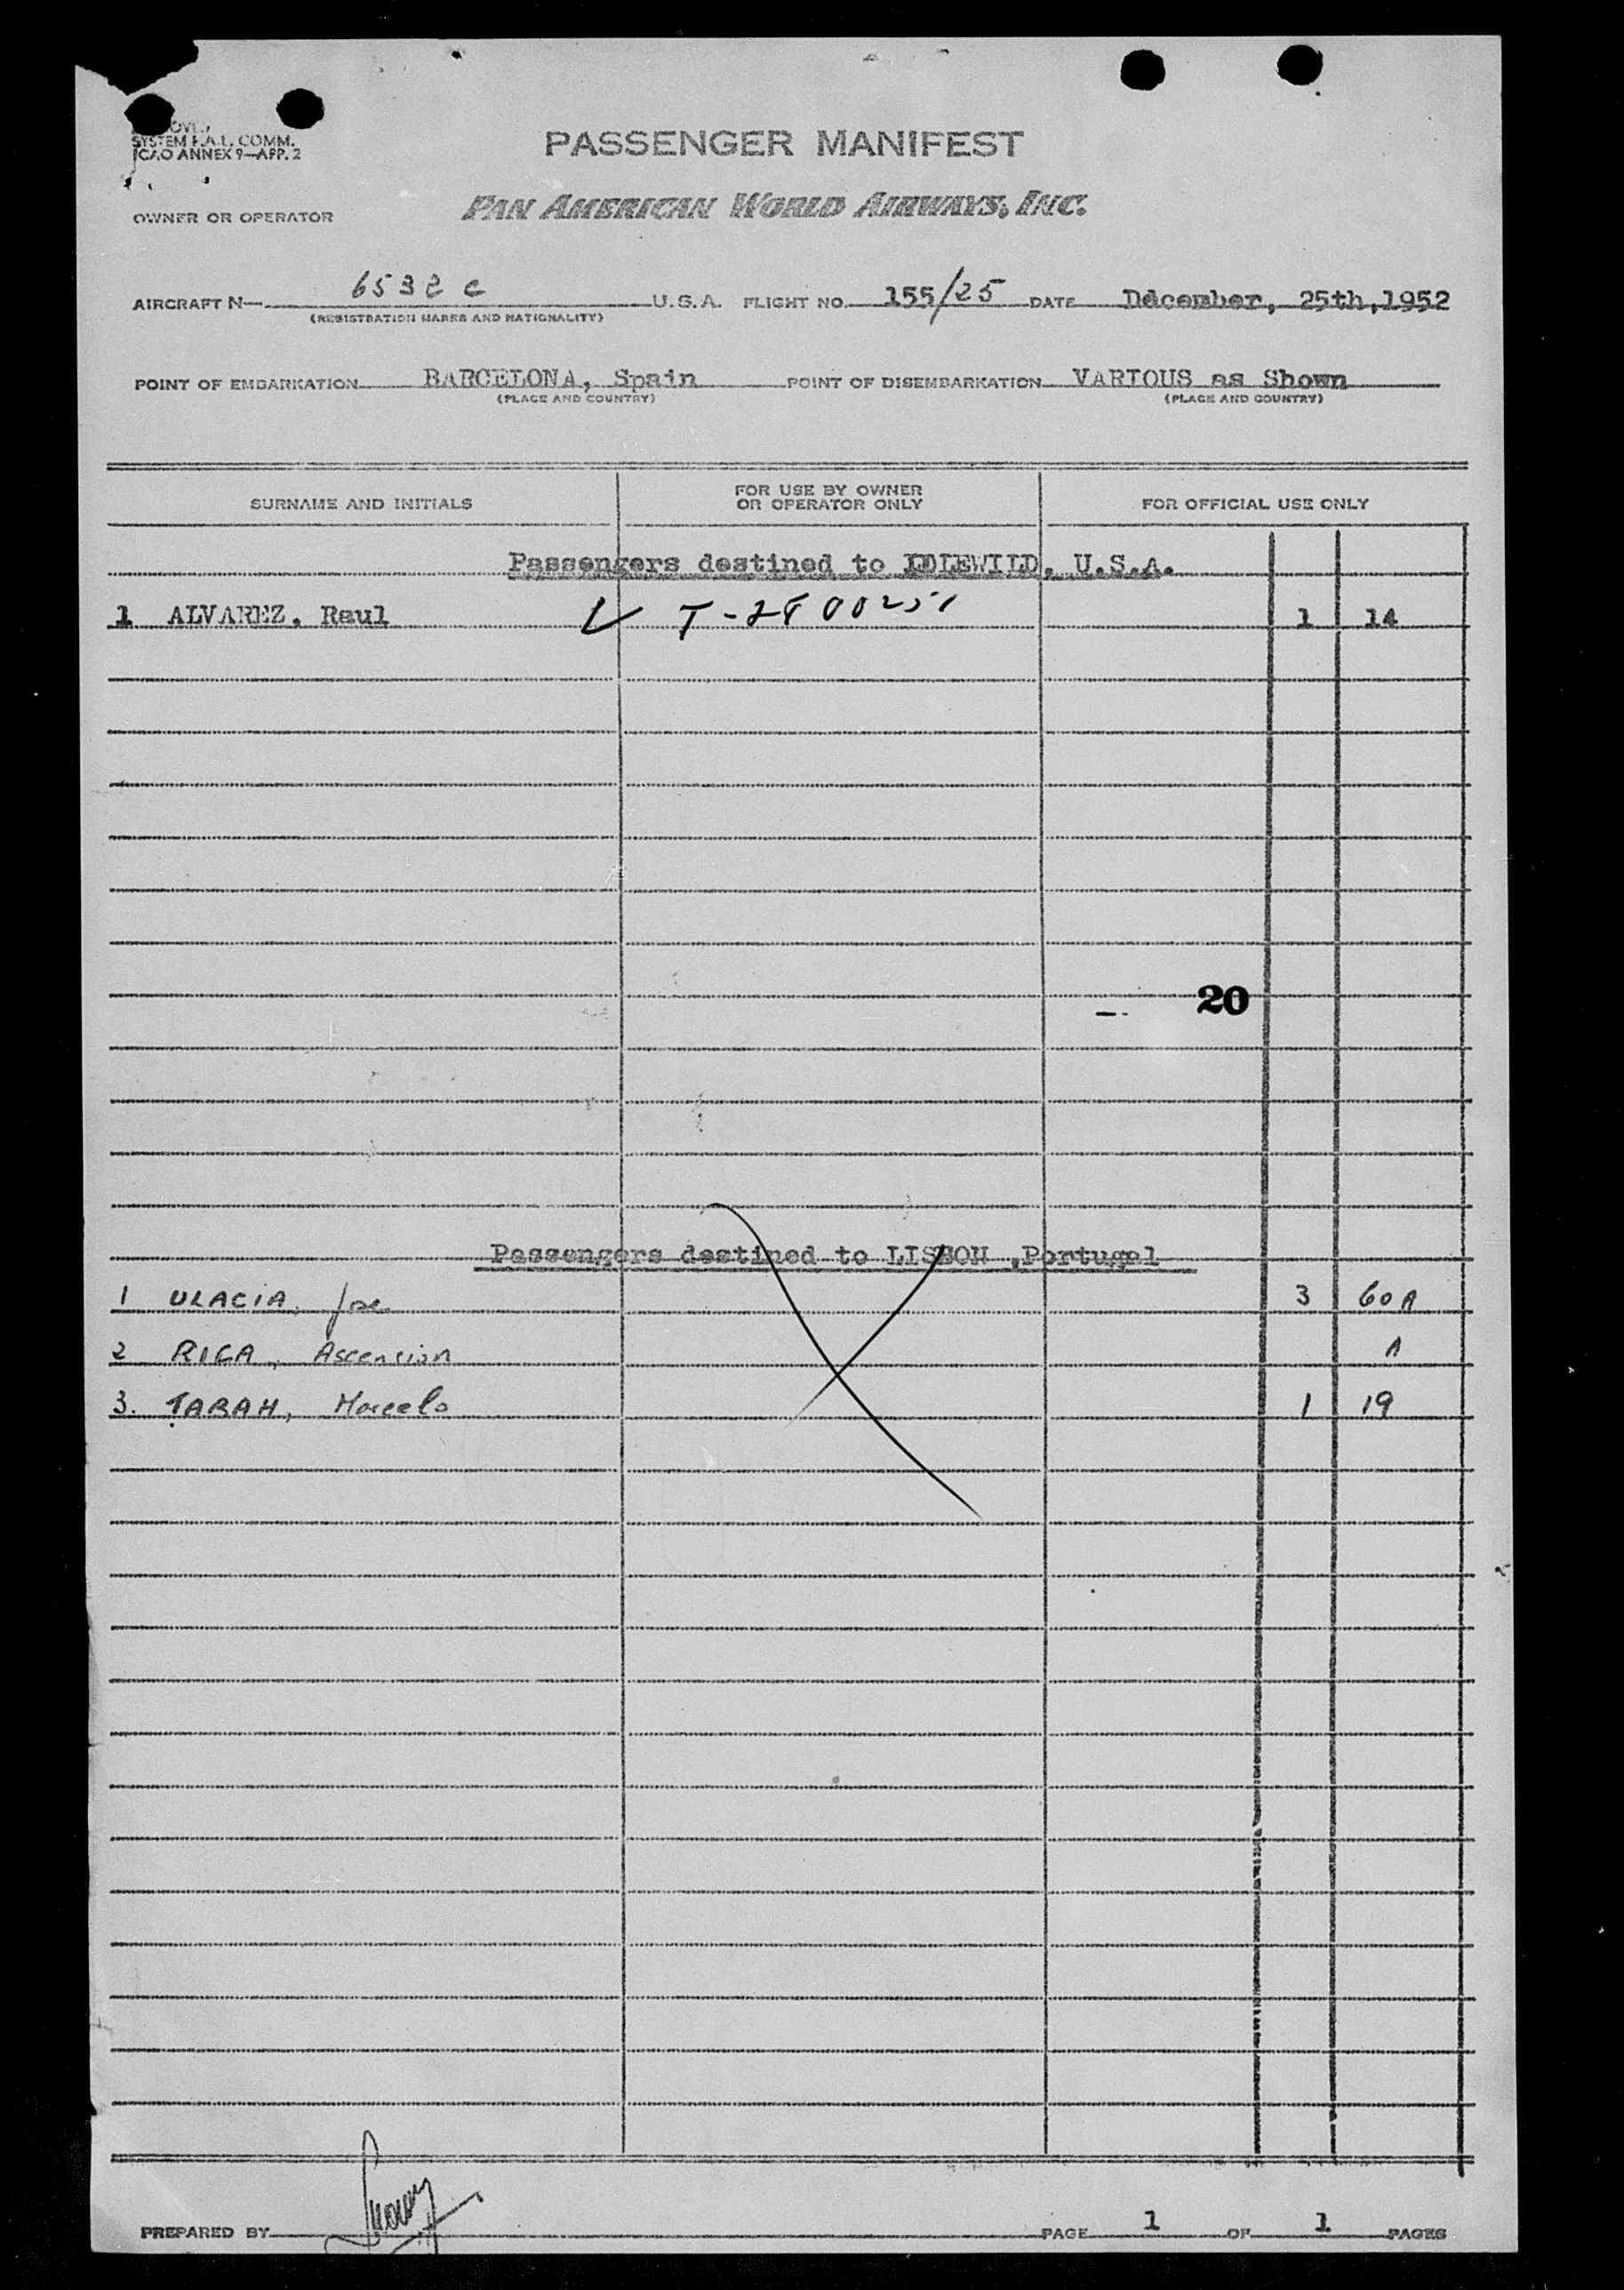 SYSTEM F.A.L. COMM.
ICAO ANNEX 9—APP. 2
PASSENGER MANIFEST
OWNER OR OPERATOR PAN AMERICAN WORLD AIRWAYS, INC.
AIRCRAFT N— 6532 C U.S.A. FLIGHT NO. 155/25 DATE December, 25th, 1952
(REGISTRATION MARKS AND NATIONALITY)
POINT OF EMBARKATION BARCELONA, Spain POINT OF DISEMBARKATION VARIOUS as Shown
(PLACE AND COUNTRY) (PLACE AND COUNTRY)
SURNAME AND INITIALS FOR USE BY OWNER OR OPERATOR ONLY FOR OFFICIAL USE ONLY
Passengers destined to IDLEWILD, U.S.A.
1 ALVAREZ, Raul 1 14
20
Passengers destined to LISBON ,Portugal
1 ULACIA, Jose 3 60 A
2 RICA, Ascension A
3. TARAH, Marcelo 1 19
PREPARED BY PAGE 1 OF 1 PAGES